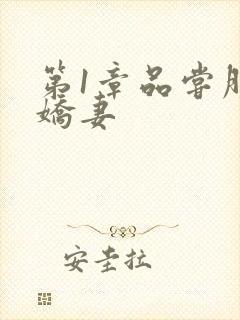 第1章品尝
娇妻
安圭拉